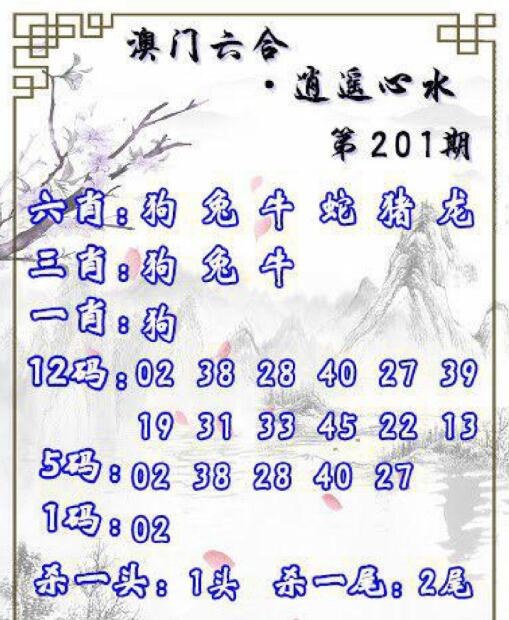 澳门六合
·逍遥心水
第201期
六肖:狗 兔 牛 蛇 猪 龙
三肖:狗 兔 牛
一肖:狗
12码:02 38 28 40 27 39
19 31 33 45 22 13
5码:02 38 28 40 27
1码:02
杀一头:1头 杀一尾:2尾